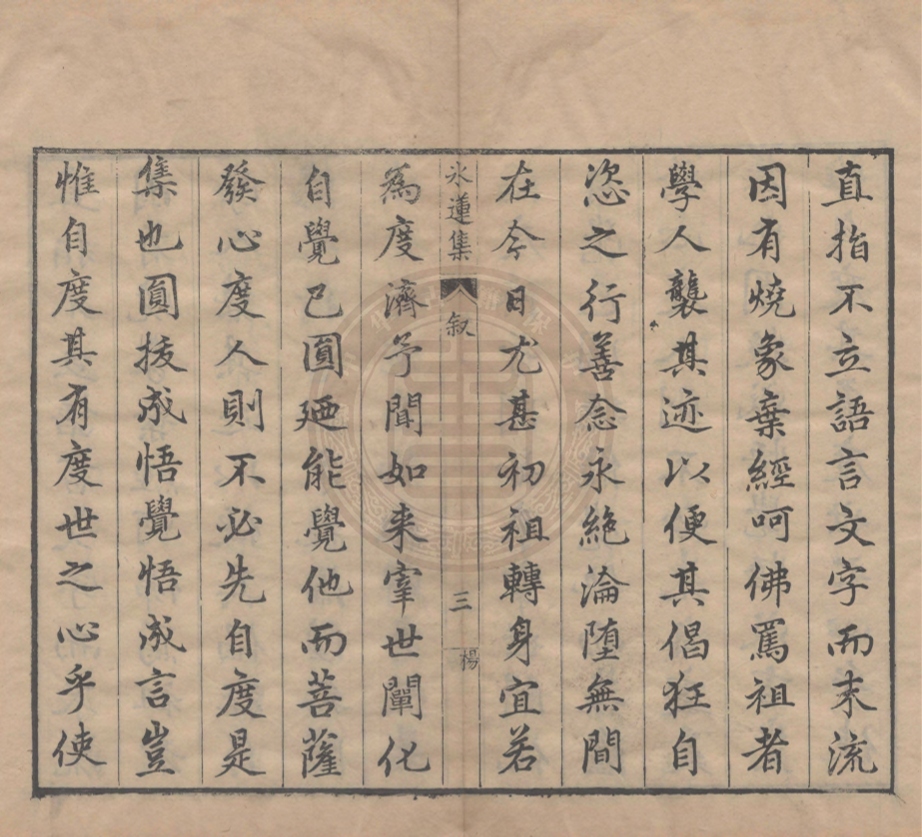 直指不立語言文字而末流
因有燒象棄經呵佛罵祖者
學人襲其迹以便其倡狂自
恣之行善念永絶淪墮無間
在今日尤甚初祖轉身宜若
氷蓮集 叙 三 楊
為度濟予聞如来宰世闡化
自覺已圓廼能覺他而菩薩
發心度人則不必先自度是
集也圓拔成悟覺悟成言豈
惟自度其有度世之心乎使